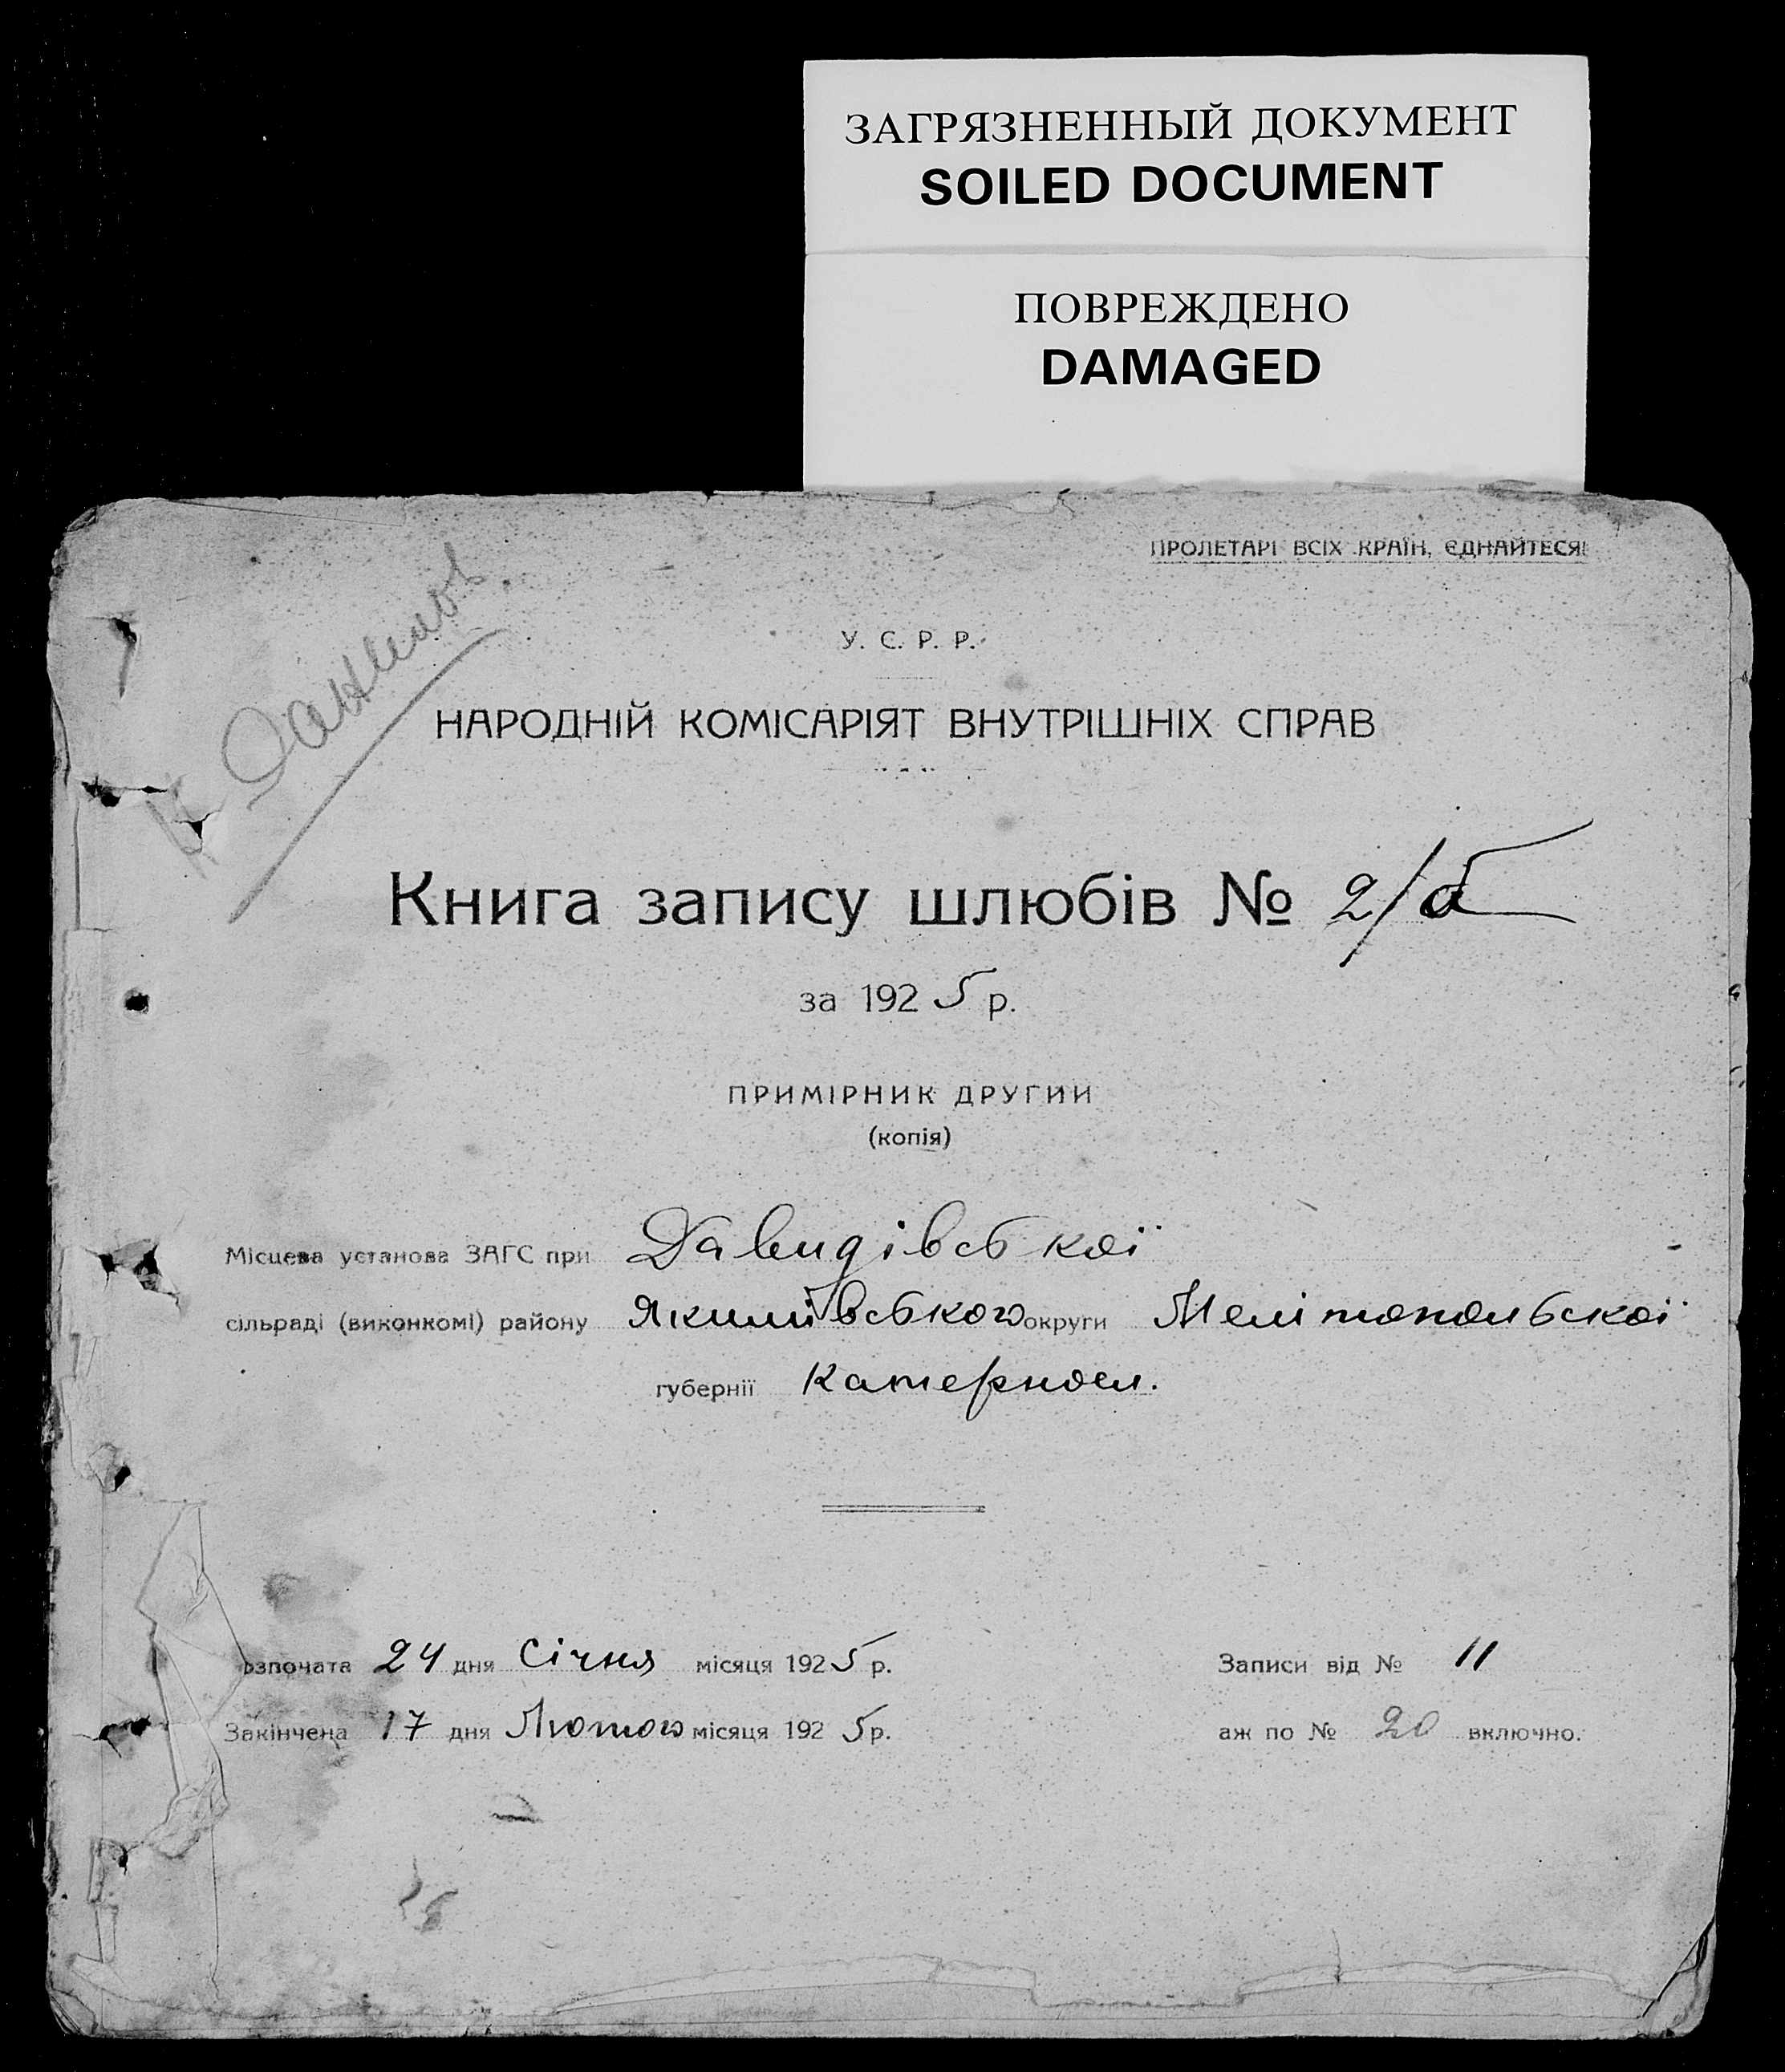 ЗАГРЯЗНЕННЫЙ ДОКУМЕНТ
SOILED DOCUMENT
ПОВРЕЖДЕНО
DAMAGED
ПРОЛЕТАРІ ВСІХ КРАЇН, ЄДНАЙТЕСЯ!
У. С. Р. Р.
НАРОДНІЙ КОМІСАРІЯТ ВНУТРІШНІХ СПРАВ
Книга запису шлюбів № 2/б
за 1925 р.
ПРИМІРНИК ДРУГИЙ
(копія)
Місцева установа ЗАГС при Давидівської
сільраді (виконкомі) району Якимівського округи Мелітопольскої
губернії Катеринос.
озпочата 24 дня Січня місяця 1925 р.
Записи від № 11
Закінчена 17 дня Лютого місяця 1925 р.
аж по № 20 включно.